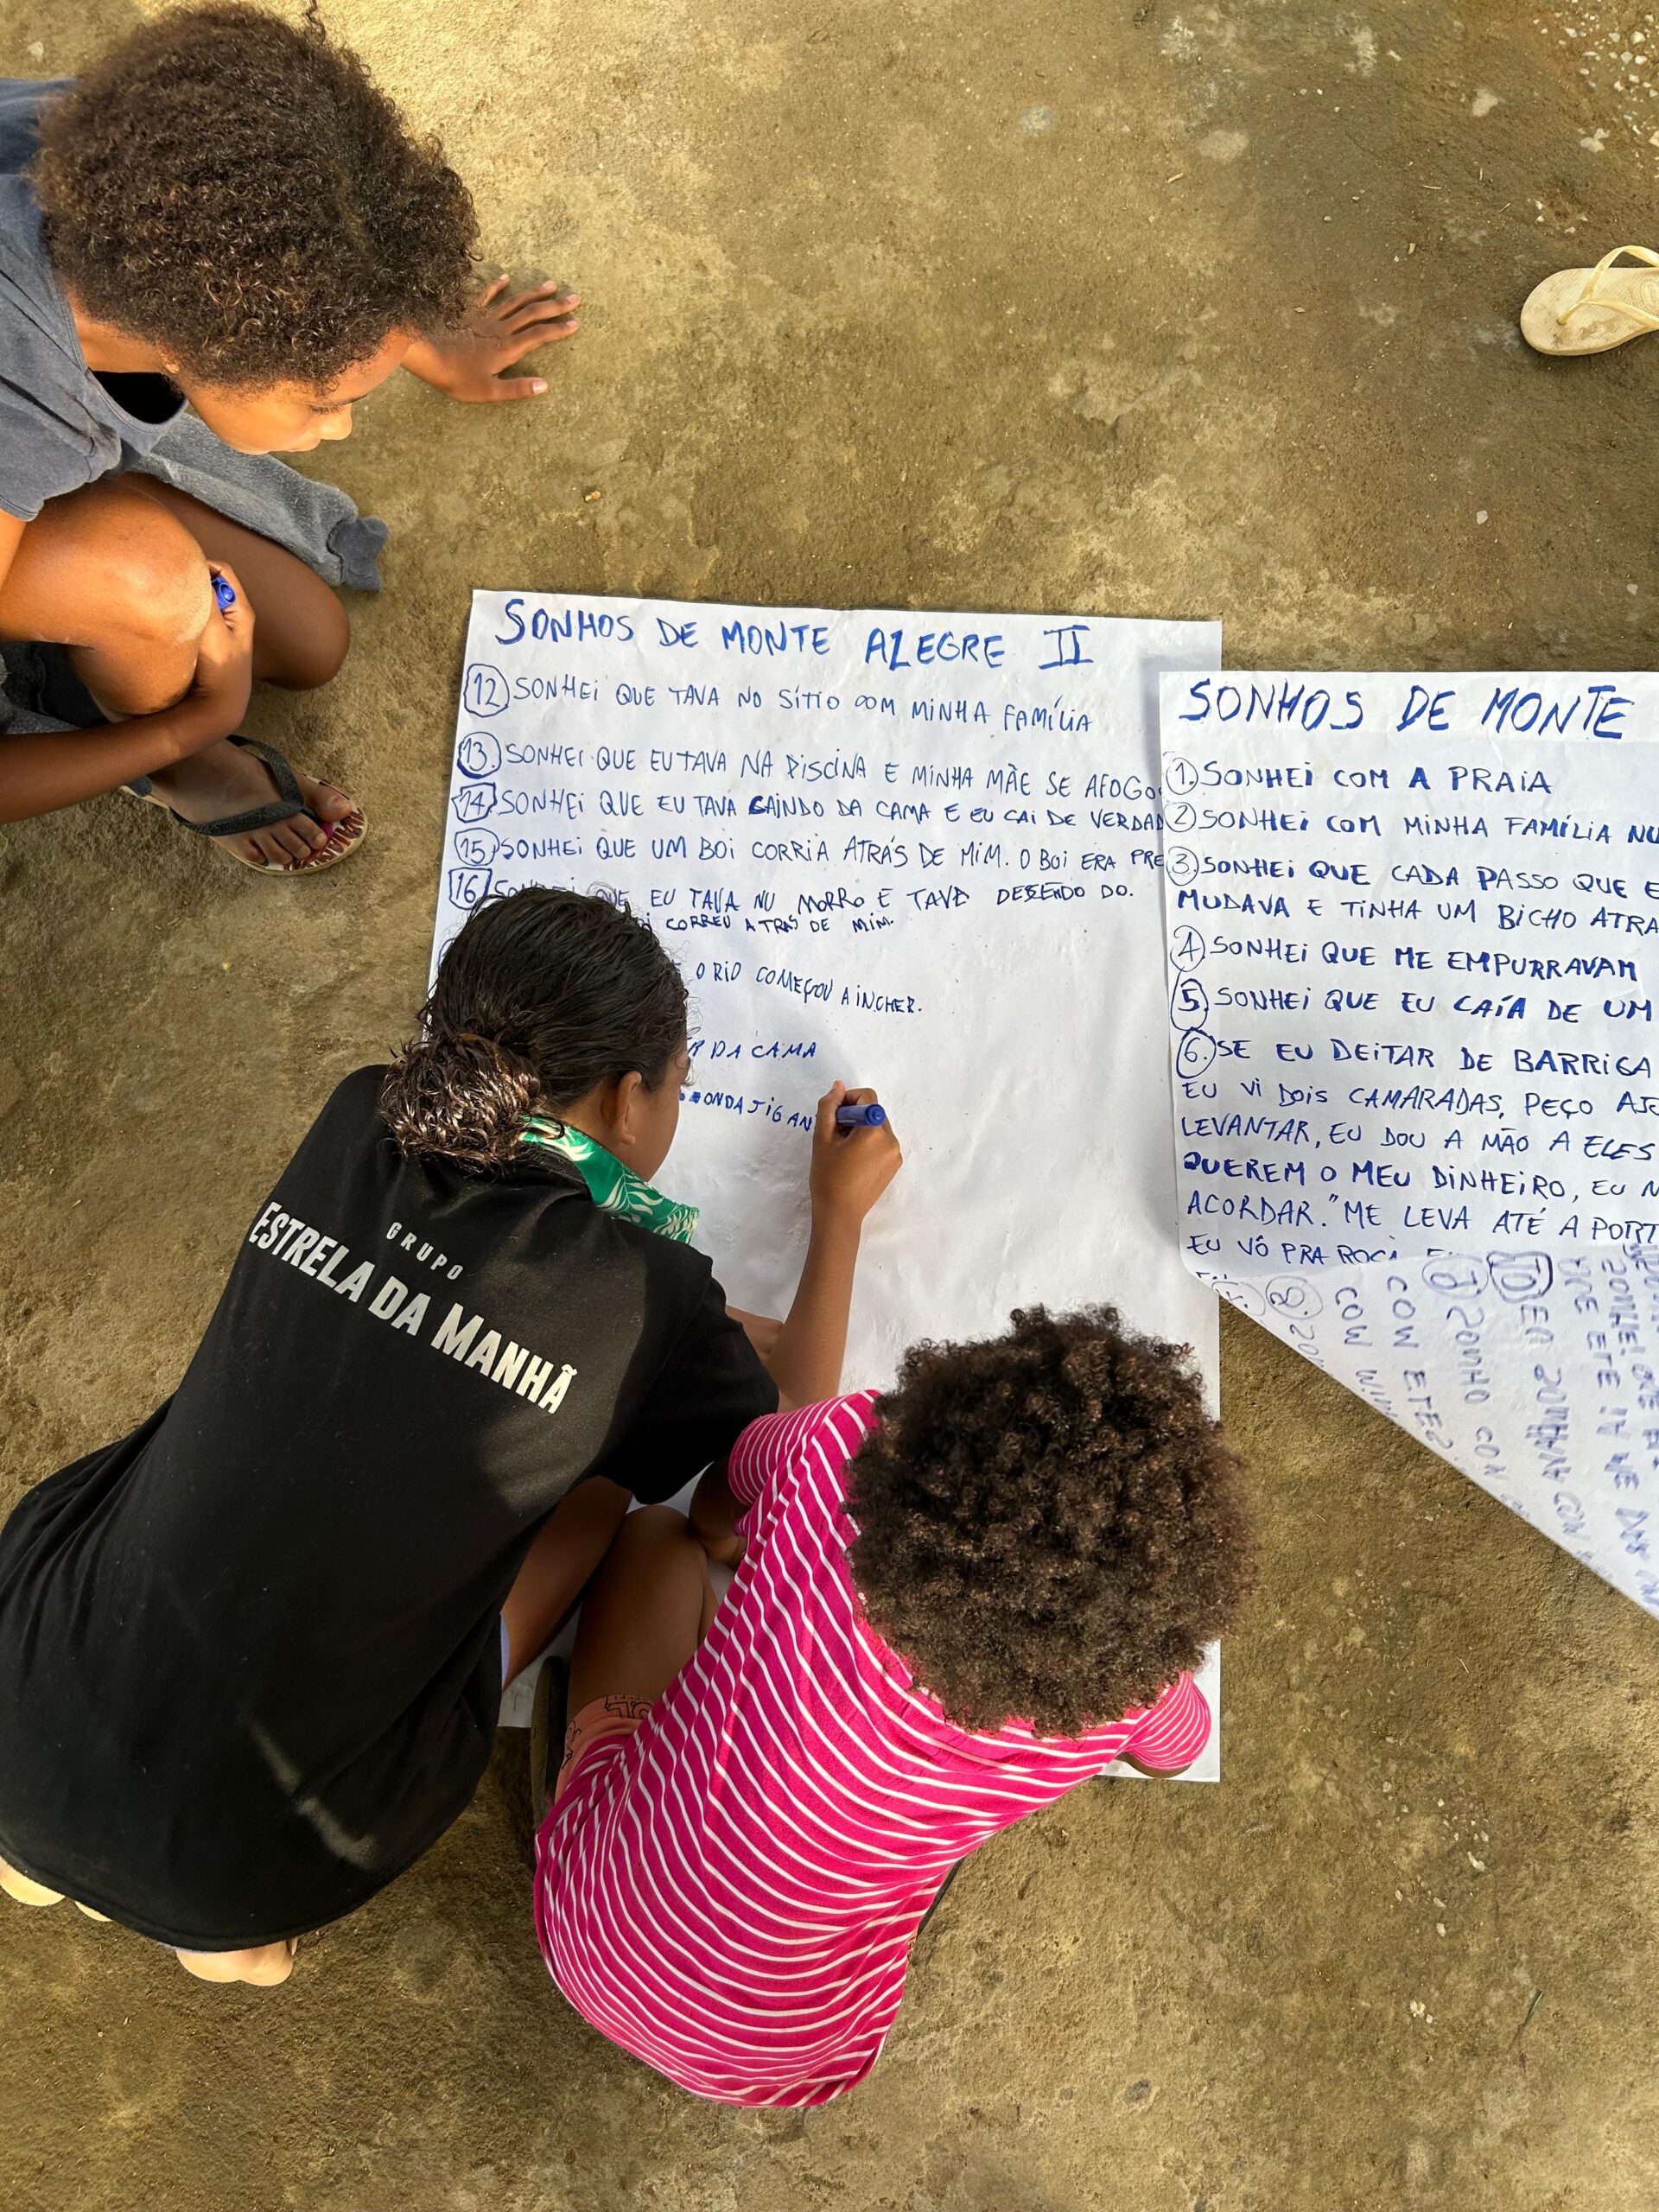 SONHOS DE MONTE ALEGRE II
12 SONHEI QUE TAVA NO SÍTIO COM MINHA FAMÍLIA
13. SONHEI QUE EU TAVA NA PISCINA E MINHA MÃE SE AFOGO
14 SONHEI QUE EU TAVA CAINDO DA CAMA E EU CAI DE VERDAD
15 SONHEI QUE UM BOI CORRIA ATRÁS DE MIM. O BOI ERA PRE
16 EU TAVA NU MORRO E TAVA DESENDO DO.
CORREU ATRÁS DE MIM.
O RIO COMEÇOU A INCHER.
DA CAMA
ONDA JIGAN
SONHOS DE MONTE
1. SONHEI COM A PRAIA
2 SONHEI COM MINHA FAMÍLIA NU
3. SONHEI QUE CADA PASSO QUE E
MUDAVA E TINHA UM BICHO ATRA
4. SONHEI QUE ME EMPURRAVAM
5. SONHEI QUE EU CAÍA DE UM
6. SE EU DEITAR DE BARRIGA
EU VI DOIS CAMARADAS, PEÇO AJ
LEVANTAR, EU DOU A MÃO A ELES
QUEREM O MEU DINHEIRO, EU N
ACORDAR. "ME LEVA ATÉ A PORT
EU VÔ PRA ROÇA
GRUPO
ESTRELA DA MANHÃ